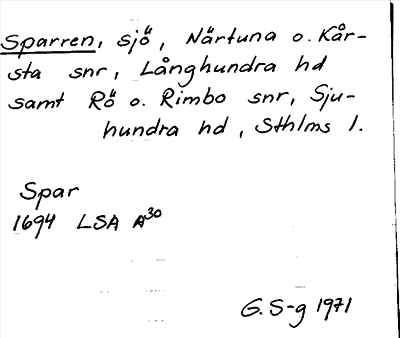 Sparren, sjö, Närtuna o. Kår-
sta snr, Långhundra hd
samt Rö o. Rimbo snr, Sju-
hundra hd, Sthlms l.
Spar
1694 LSA A30
G. S-g 1971